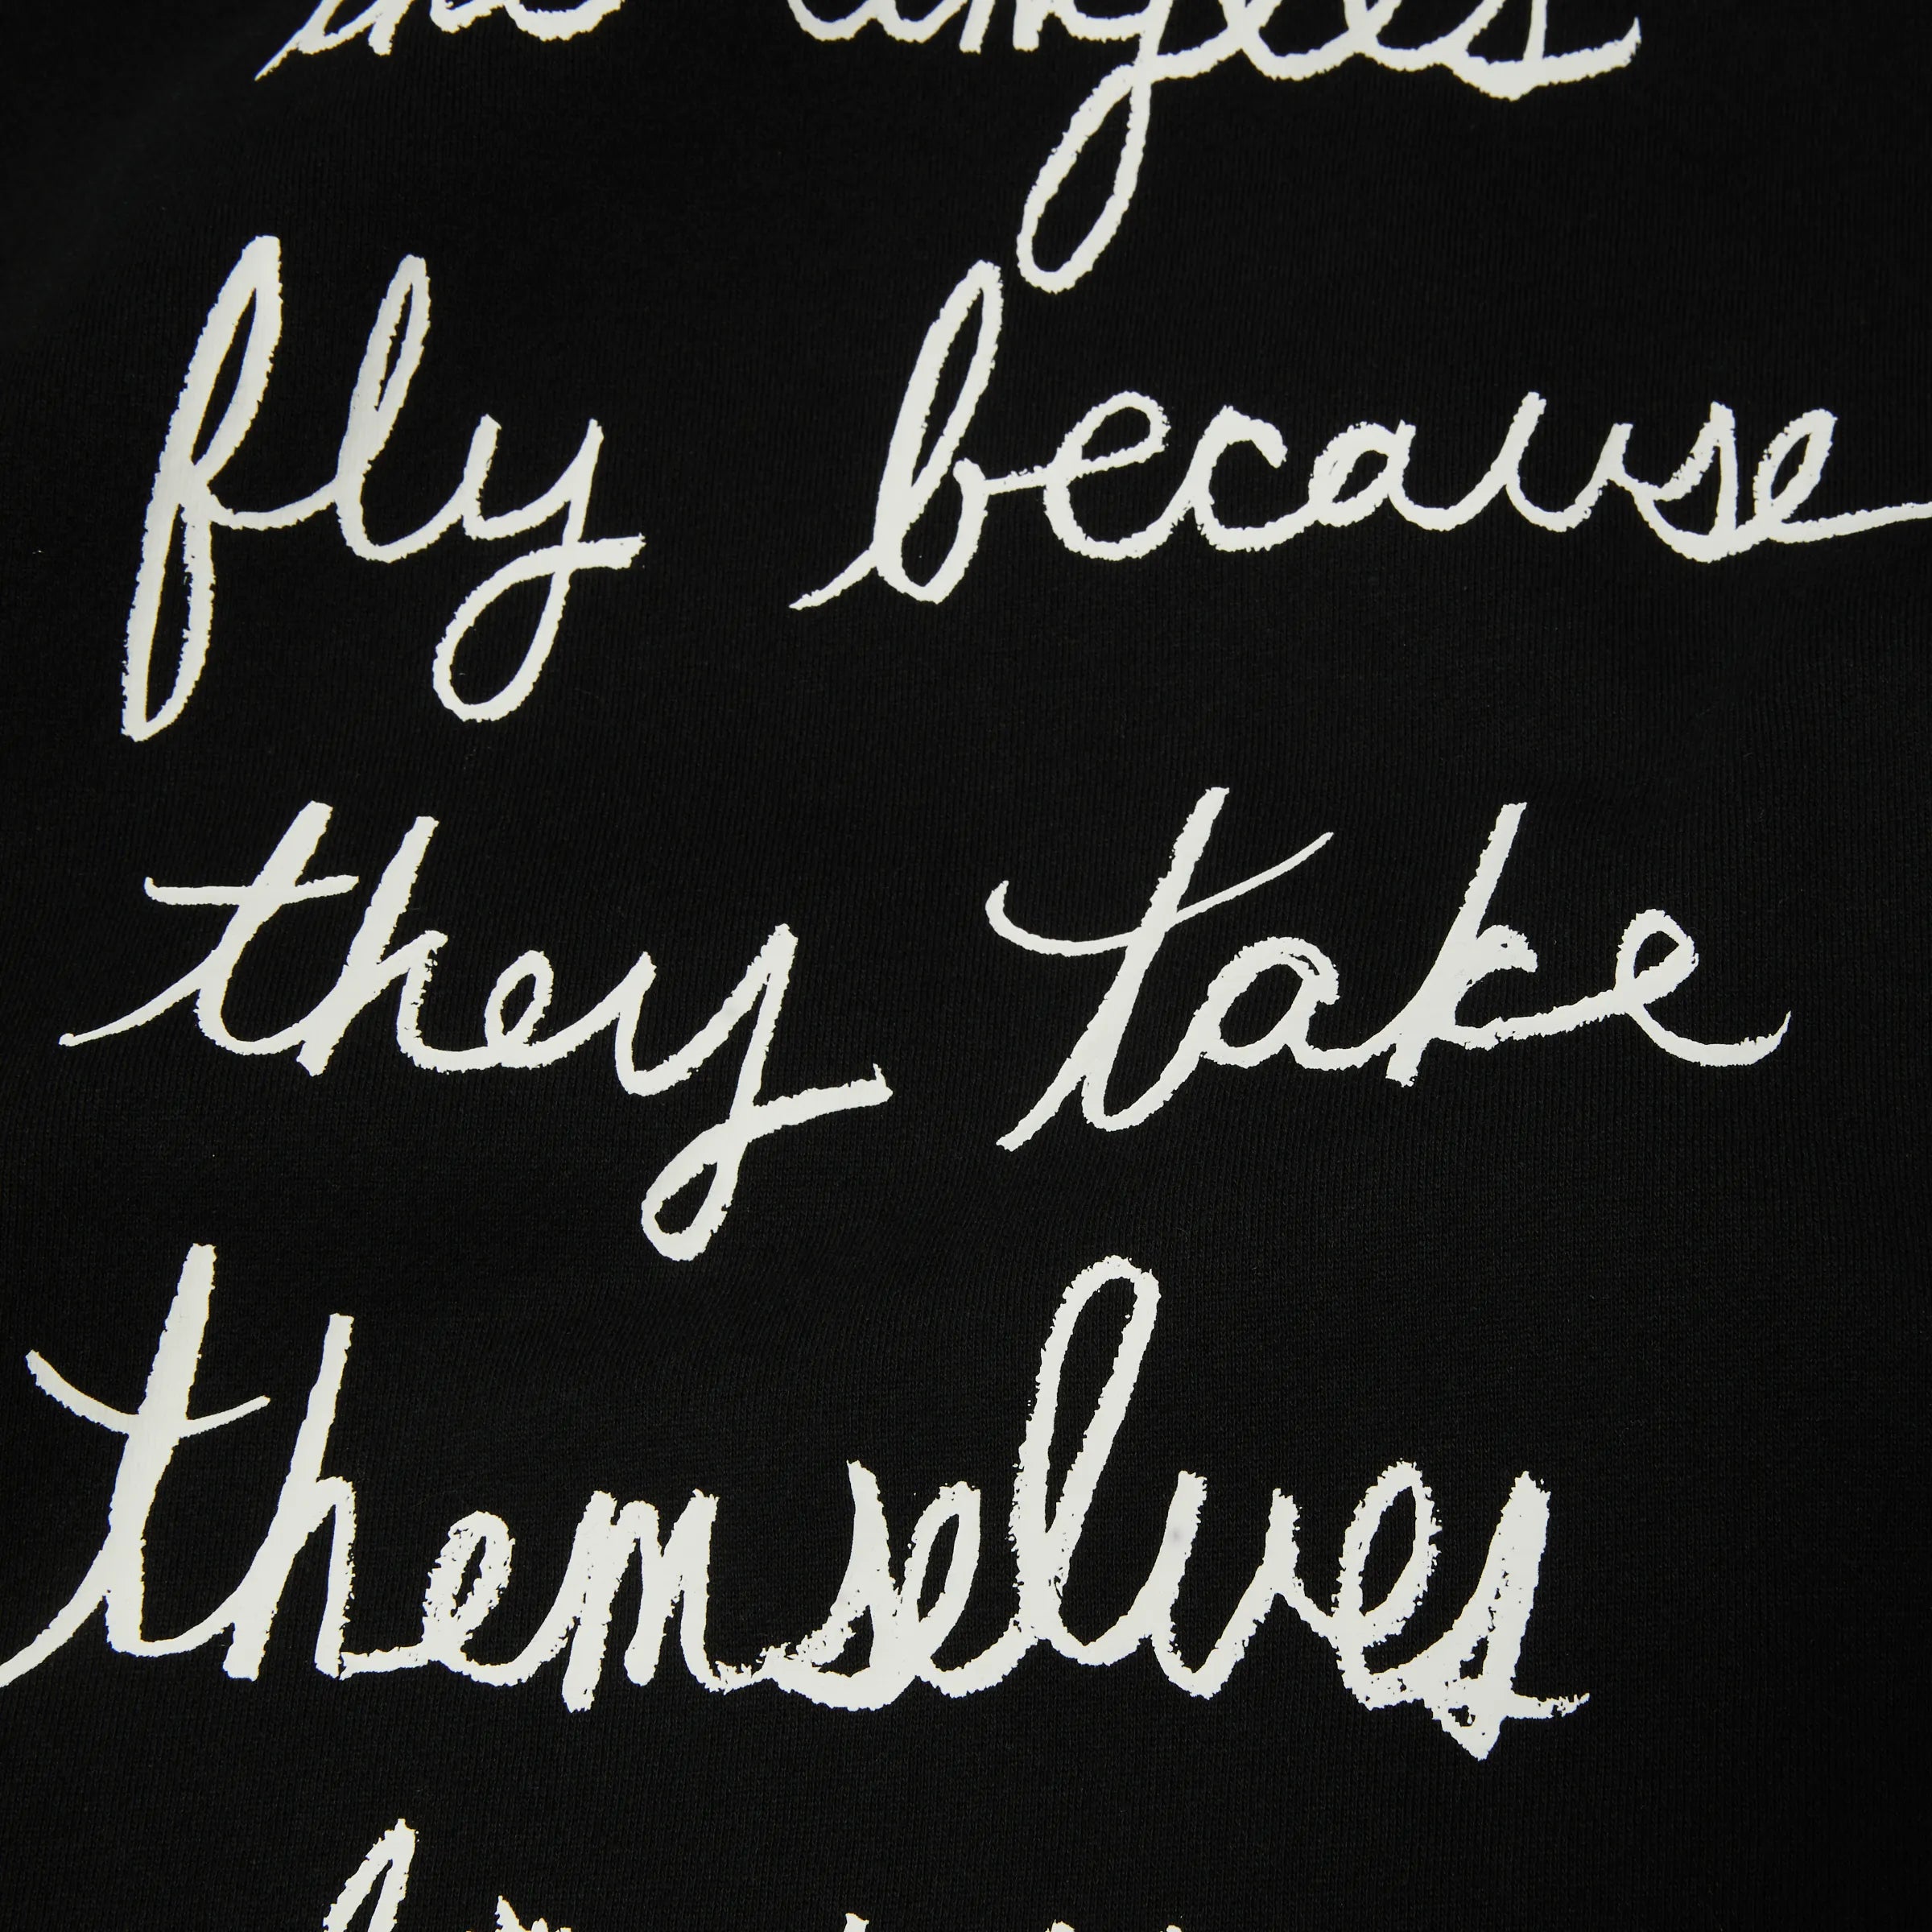 the angels
fly because
they take
themselves